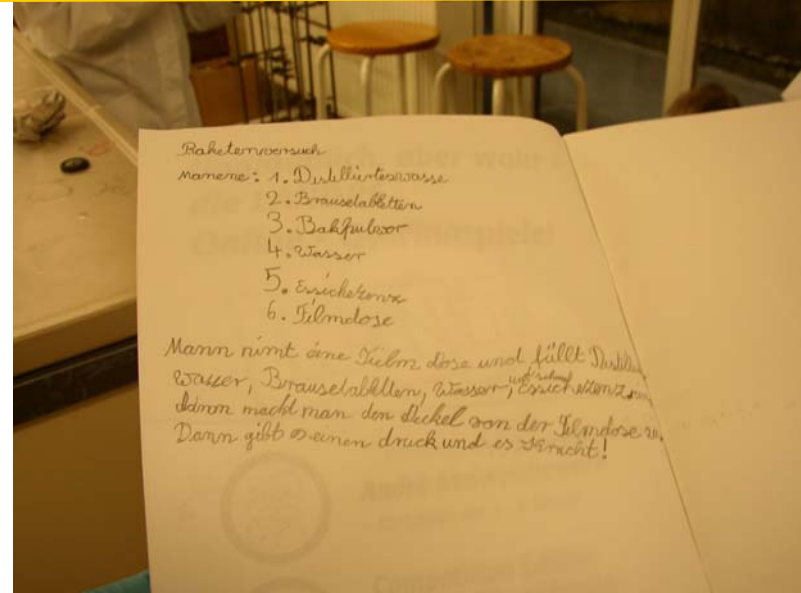 Raketenversuch
manene: 1. Distillierteswasse
2. Brausetabletten
3. Bakpulvor
4. Wasser
5. Essichezenz
6. Filmdose
Mann nimt eine Film dose und füllt Distillier
Wasser, Brausetabletten, Wasser, und schnel Essichezenz
dannn macht man den deckel von der Filmdose zu.
Dann gibt es einen druck und es Kracht!